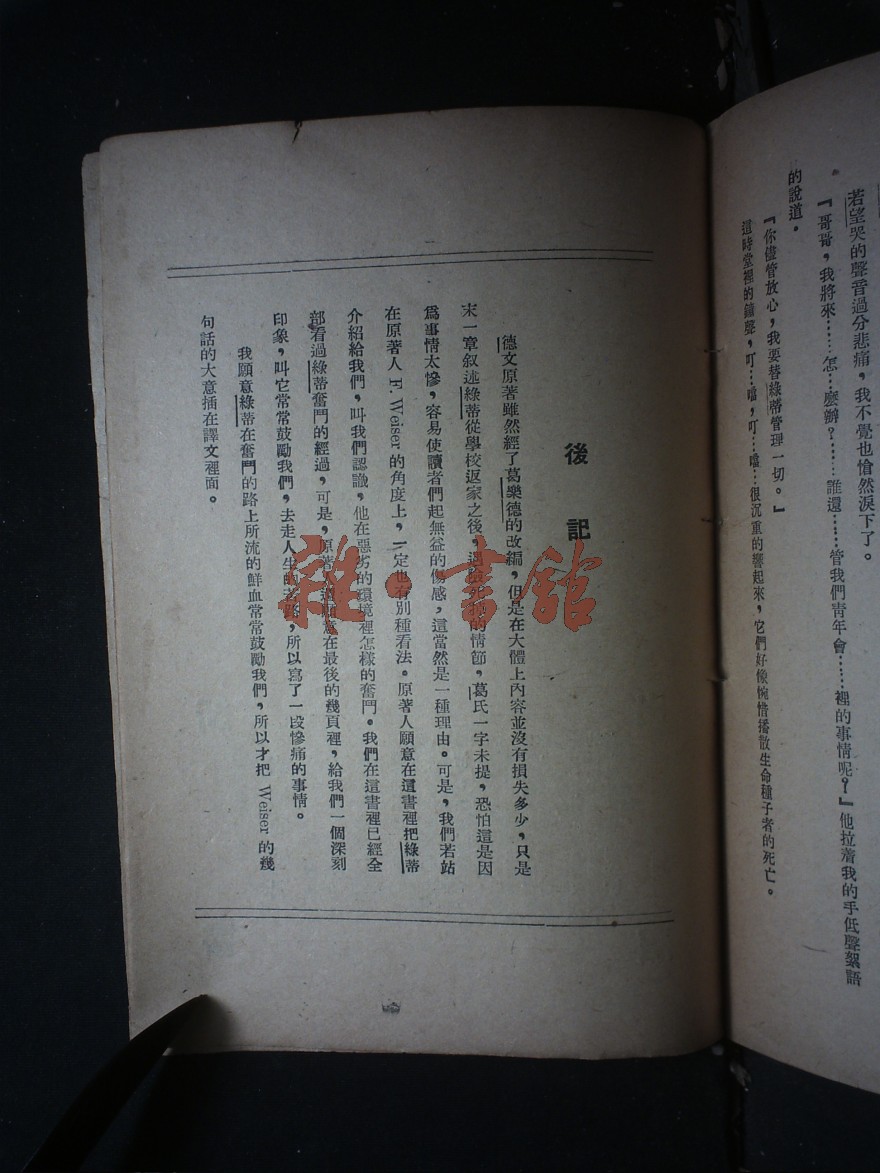 若望哭的聲音過分悲痛，我不覺也愴然淚下了。
『哥哥，我將來……怎…麽辦？……誰還……管我們靑年會……裡的事情呢？』他拉着我的手低聲絮語
的說道。
『你儘管放心，我要替綠蒂管理一切。』
這時堂裡的鐘聲，叮…噹，叮…噹…很沉重的響起來，它們好像惋惜播散生命種子者的死亡。
後記
德文原著雖然經了葛樂德的改編，但是在大體上內容並沒有損失多少，只是
末一章叙述綠蒂從學校返家之後，遇的情節，葛氏一字未提，恐怕這是因
爲事情太慘，容易使讀者們起無益的傷感，這當然是一種理由。可是，我們若站
在原著人 F. Weiser 的角度上，一定也有別種看法。原著人願意在這書裡把綠蒂
介紹給我們，叫我們認識，他在惡劣的環境裡怎樣的奮鬥。我們在這書裡已經全
部看過綠蒂奮鬥的經過，可是，原著人還願意在最後的幾頁裡，給我們一個深刻
印象，叫它常常鼓勵我們，去走人生的苦路，所以寫了一段慘痛的事情。
我願意綠蒂在奮鬥的路上所流的鮮血常常鼓勵我們，所以才把 Weiser 的幾
句話的大意插在譯文裡面。
雜·書館